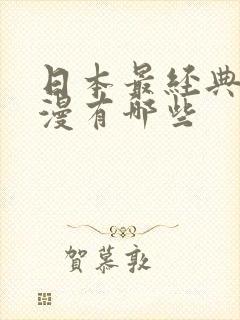 日本最经典
漫有哪些
賀慕敦